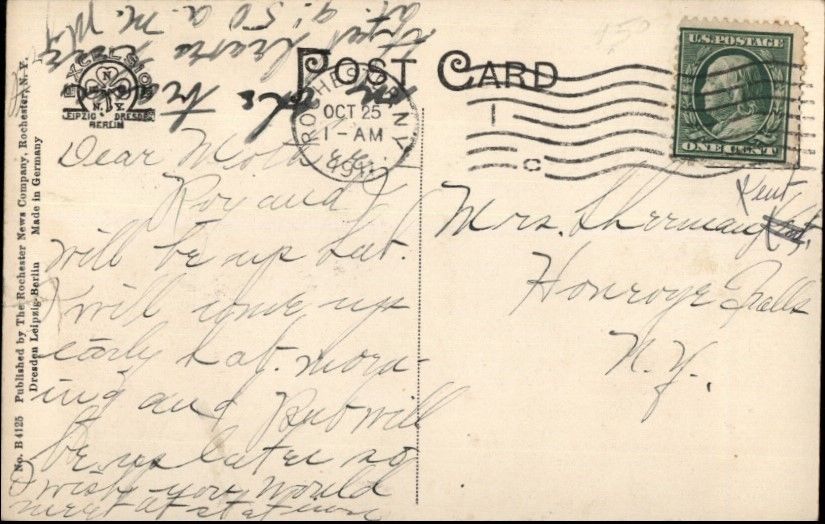 No. B4125 Published by The Rochester News Company, Rochester, N. Y.
Dresden Leipzig-Berlin Made in Germany
EXCELSIOR
N.
N. Y.
LEIPZIG DRESDEN
BERLIN
POST CARD
ROCHESTER, N.Y.
OCT 25
1-AM
1911
U.S. POSTAGE
ONE CENT
Dear Mother,
Roy and I
will be up Sat.
I will come up
early Sat. morn-
ing and Rub will
be up later so
I wish you would
meet at station
the train
that leaves here
at 9:50 a. m. My
Mrs. Sherman Kent
Honeoye Falls
N. Y.